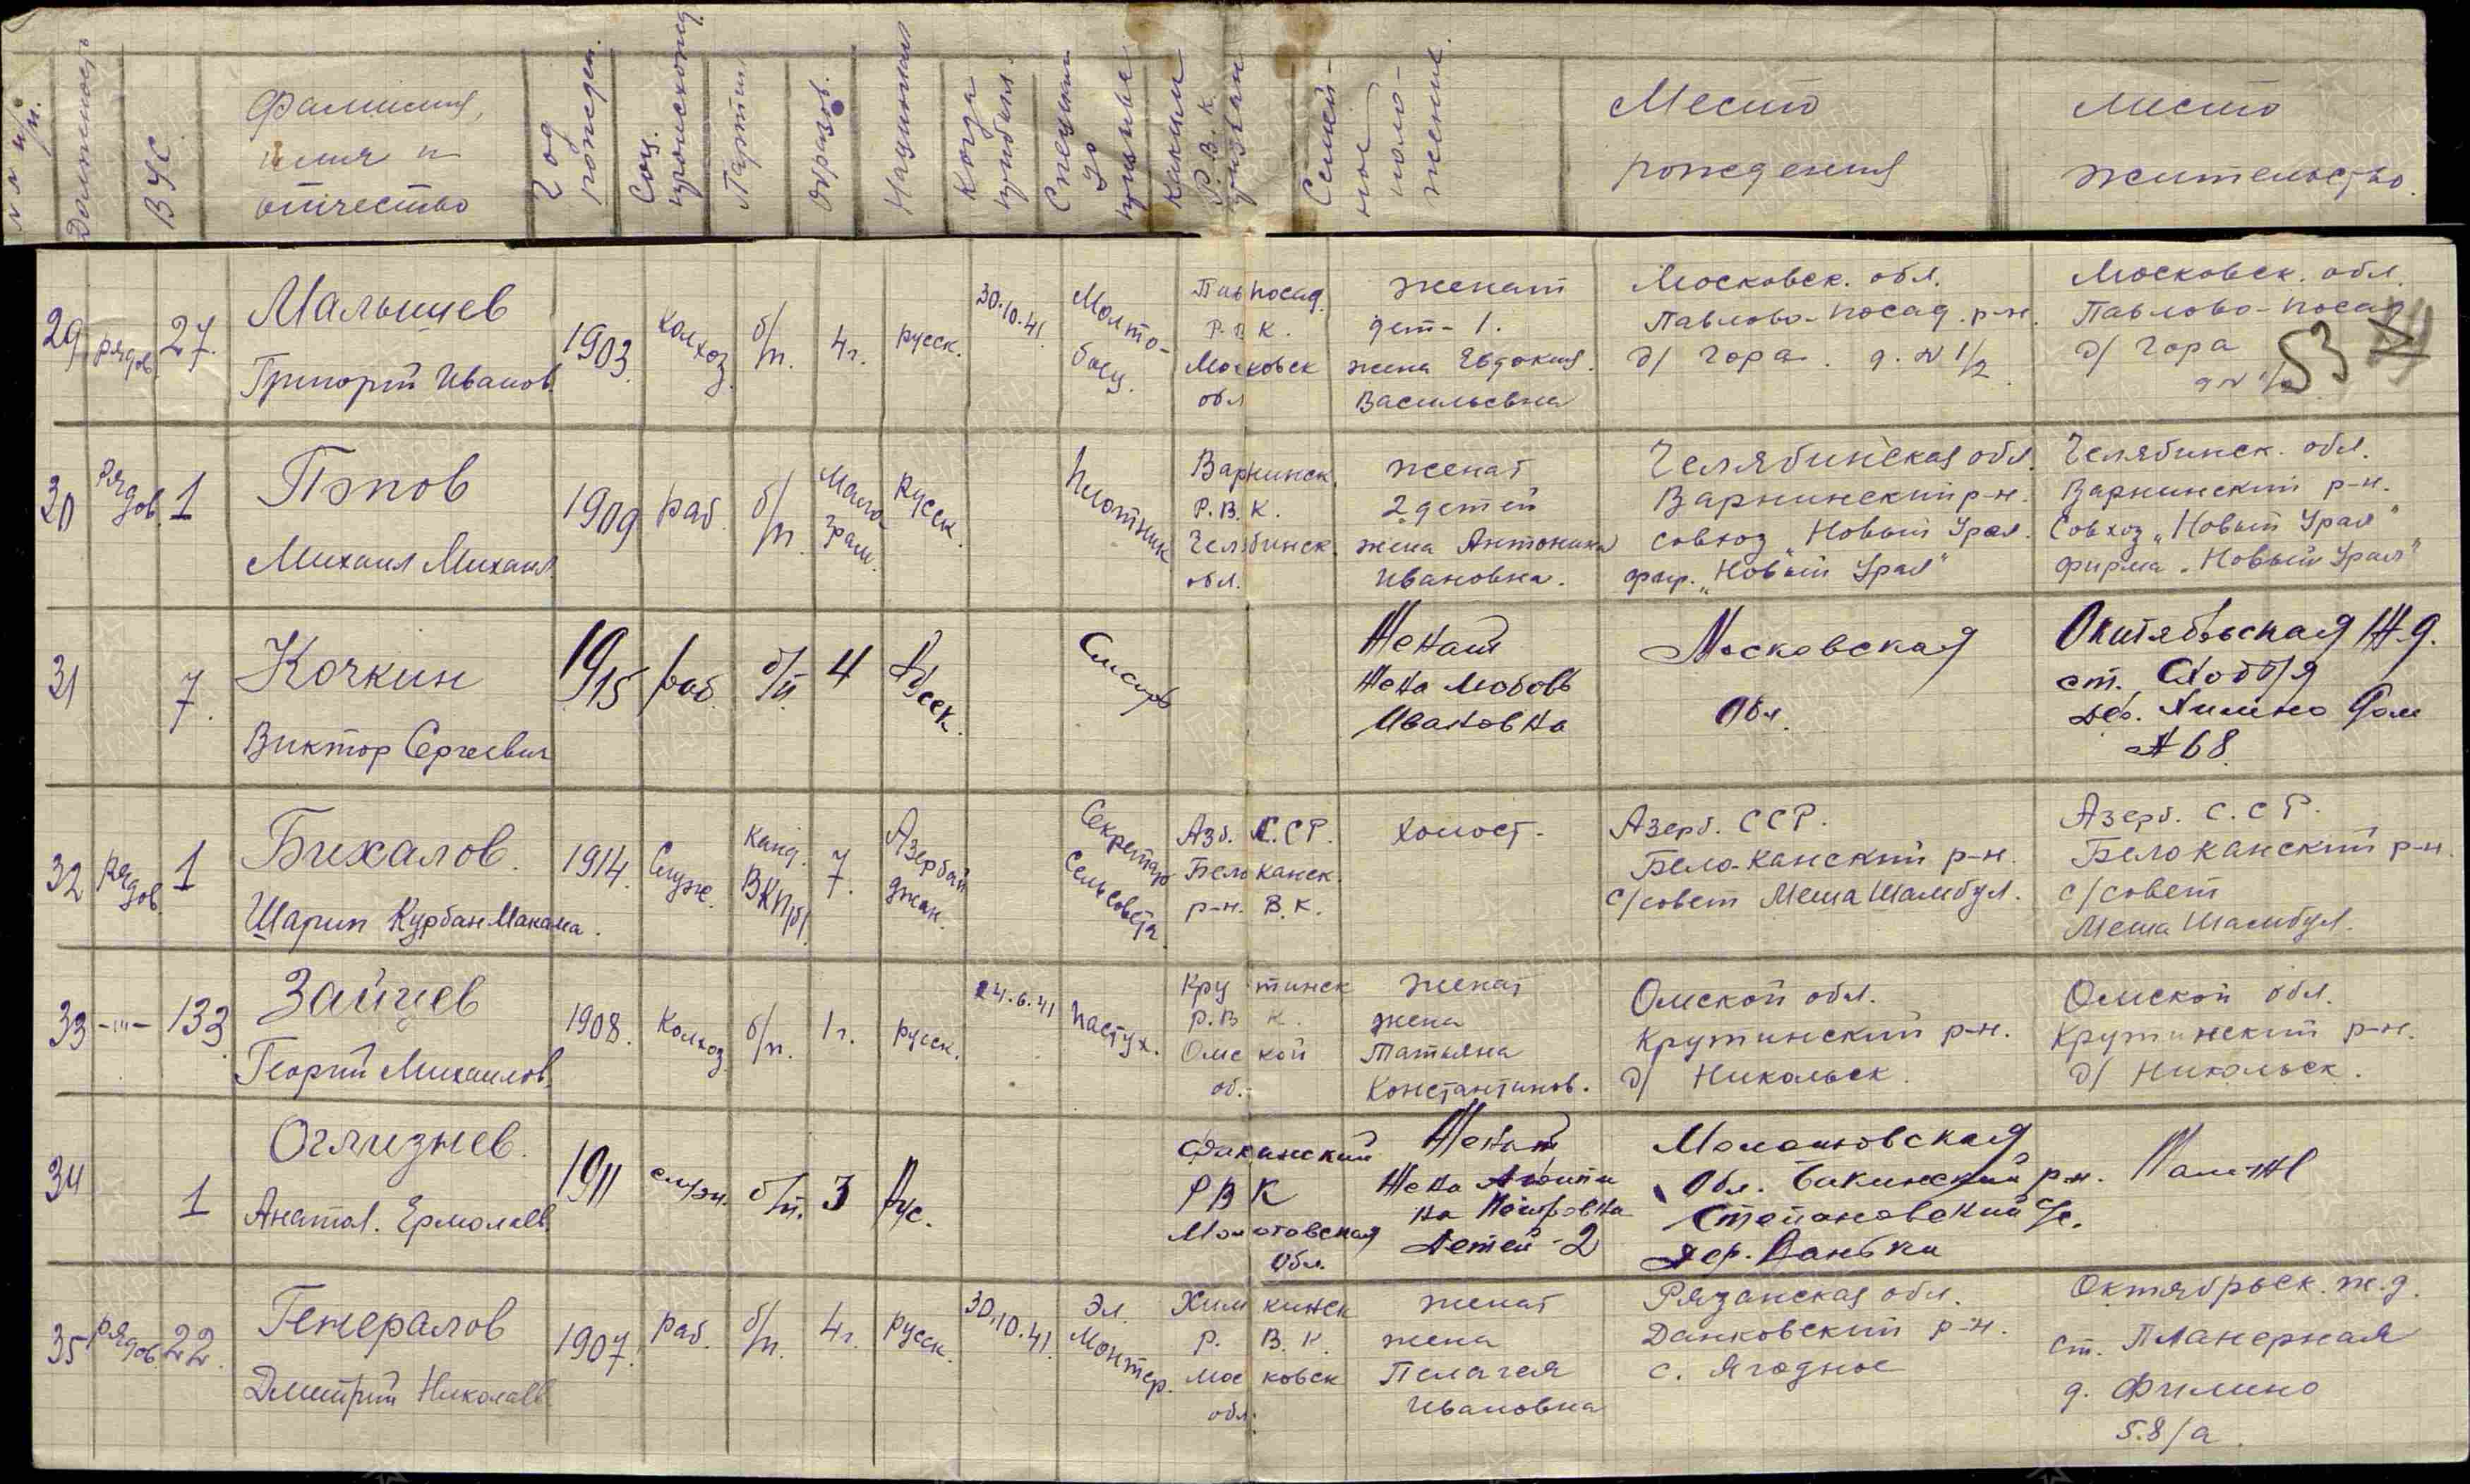 №№ п/п. Должность ВУС Фамилия, имя и отчество Год рожден. Соц. происхожд. Партия Образов. Национал Когда прибыл. Специальн до призыва Каким Р.В.К. призван Семей-ное поло-жение. Место рождения Место жительство.
29 рядов. 27. Малышев
Григорий Иванов.
1903. колхоз. б/п. 4г. русск. 30.10.41.
Пав посад.
Р.В.К.
Московск
обл
женат
дет- 1.
жена Евдокия.
Васильевна
Московск. обл.
Павлово-посад. р-н.
д/ Гора. д. № 1/2
Московск. обл.
Павлово-посад
д/ Гора
д №
53
30 рядов. 1 Попов
Михаил Михаил
1909 раб. б/п. Мало грам. Русск. плотник
Варнинск.
Р.В.К.
Челябинск.
обл.
женат
2 детей
жена Антонина
Ивановна.
Челябинская обл.
Варнинский р-н.
совхоз "Новый Урал.
фир. "Новый Урал"
Челябинск. обл.
Варнинский р-н.
Совхоз "Новый Урал"
фирма "Новый Урал"
31 7. Кочкин
Виктор Сергеевич
1915 раб. б/п 4 Русск. Слесарь
Женат
Жена Любовь
Ивановна
Московская
Обл.
Октябрьская Ж.д.
ст. Сходня
дер. дом
№ 68.
32 рядов. 1 Бихалов.
Шарип Курбан Макама.
1914. Служ. канд. ВКП(б). 7. Азербай джан. Секретарь Сельсовета.
Азб. С.СР.
Бело канск.
р-н. В.К.
холост.
Азерб. ССР.
Бело-Канский р-н.
с/совет Меша Шамбул.
Азерб. С.С.Р.
Белоканский р-н.
с/совет
Меша Шамбул.
33 -"'- 133. Зайцев
Георгий Михаилов.
1908. Колхоз б/п. 1г. русск. 24.6.41 пастух.
Кру тинск
Р.В К.
Омс кой
об.
женат
жена
Татьяна
Константинов.
Омской обл.
Крутинский р-н.
д/ Никольск.
Омской обл.
Крутинский р-н.
д/ Никольск.
34 1 Оглизнев.
Анатол. Ермолаев.
1911 служ. б/п. 3 Рус.
РВК
Молотовская
Обл.
Женат
Жена
Петровна
Детей-2
Молотовская
Обл. р-н.
Степановский с/с.
дер. Ваньки
Там-же
35 рядов. 22. Генералов
Дмитрий Николаев
1907. раб. б/п. 4г. русск. 30.10.41. Эл. Монтер.
Хим кинск
Р. В.К.
Мос ковск
обл.
женат
жена
Пелагея
Ивановна
Рязанская обл.
Данковский р-н.
с. Ягодное
Октябрьск. ж.д.
ст. Планерная
д. Филино
5.8/а.